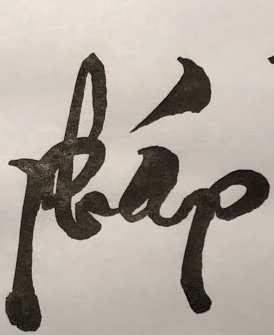 pháp